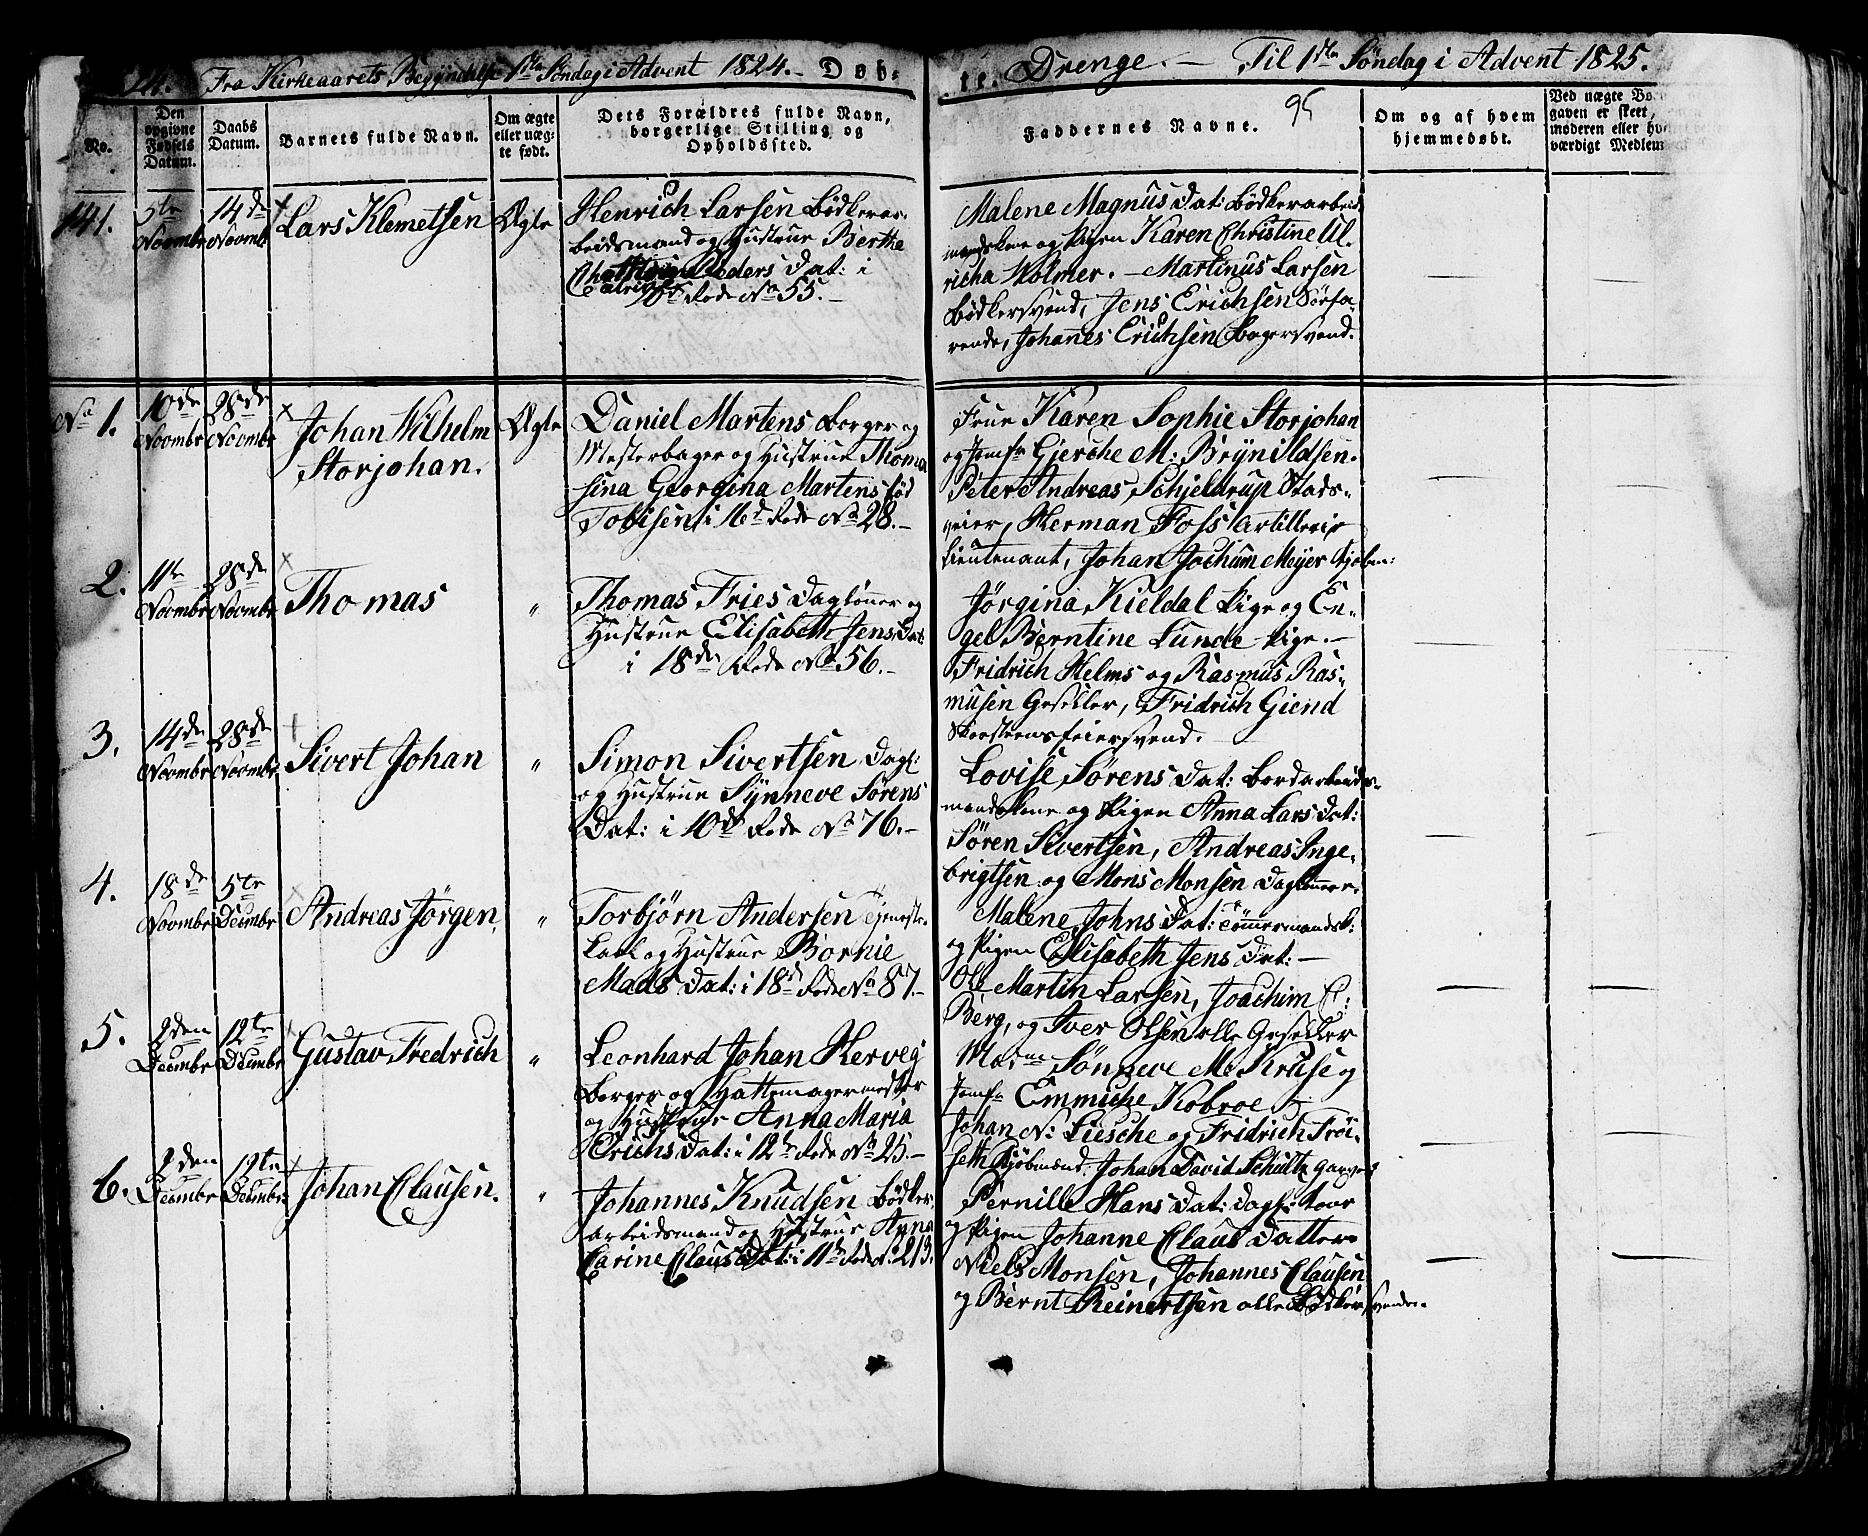 Fra Kirkeaarets Begÿndelse 1ste Søndag i Advent 1824. – Døb-
te. Drenge. – Til 1ste Søndag i Advent 1825.
95
No.
Den opgivne Fødsels Datum.
Daabs Datum.
Barnets fulde Navn.
Om ægte eller uæg-
te født.
Dets Forældres fulde Navn,
borgerlige Stilling og
Opholdssted.
Faddernes Navne.
Om og af hvem
hjemmedøbt.
Ved uægte
gaven er skeet,
moderen eller
værdigt Medlem
141.
5te Novmbr
14de Novmbr
Lars Klemetsen
Ægte
Henrich Larsen Bødkerar-
beidsmand og Hustrue Berthe
Peders Dat: i
Rode No 55. –
Malene Magnus Dat: Bødkerarbeids
mandskone og Pigen Karen Christine Ul-
richa Wolmer. – Martinus Larsen
Bødkersvend, Jens Erichsen Søefa-
rende, Johannes Erichsen Bagersvend.
No 1.
10de Novmbr
28de Novmbr
Johan Wilhelm
Storjohan.
Ægte
Daniel Martens Borger og
Mesterbager og Hustrue Thoma
sina Georgina Martens fød
Tobisen i 16d Rode No 28. –
Frue Karen Sophie Storjohan
og Jomfr Gjerche M: Brÿnildsen.
Peter Andreas Schjeldrup Stads-
veier, Herman Foss Artillerie
Lieutenant, Johan Jochum Meÿer Kjøbm:
2.
11te Novmbr
28de Novmbr
Thomas
"
Thomas Fries Daglønner og
Hustrue Elisabeth Jens Dat:
i 18de Rode No 56. –
Jørgina Kieldal Pige og En-
gel Berntine Lunde Pige. –
Fridrich Helms og Rasmus Ras-
musen Geseller, Fridrich Giend
Skorsteensfeiersvend.
3.
14de Novmbr
28de Novmbr
Sivert Johan
"
Simon Sivertsen Dagl:
og Hustrue Sÿnneve Sørens
Dat: i 10de Rode No 76. –
Lovise Sørens Dat: Bordarbeids-
mandskone og Pigen Anna Lars Dat:
Søren Sivertsen, Andreas Inge-
brigtsen og Mons Monsen Daglønnere.
4.
18de Novmbr
5te Decmbr
Andreas Jørgen.
"
Torbjørn Andersen Tjeneste-
karl og Hustrue Bornie
Mads Dat: i 18d Rode No 87. –
Malene Johns Dat: Tømmermandsk:
og Pigen Elisabeth Jens Dat: –
Ole Martin Larsen, Joachim C:
Berg, og Iver Olsen alle Geseller
5.
2den Decmbr
12te Decmbr
Gustav Fredrich
"
Leonhard Johan Herveg
Borger og Hattemagermester
og Hustrue Anna Maria
Erichs Dat: i 12te Rode No 25. –
Madme Sønneve M. Kruse og
Jomfr Emmiche Kobroe. –
Johan N: Liesche og Fridrich Trøi-
seth Kjøbmænd. Johan David Schultz
6.
2den Decmbr
12te Decmbr
Johan Clausen.
"
Johannes Knudsen Bødker
arbeidsmand og Hustrue Anna
Carine Claus Dat: i 11te Rode No 213.
Pernille Hans Dat: Dagl: kone
og Pigen Johanne Claus Datter
Niels Monsen, Johannes Clausen
og Bernt Reinertsen alle Bødkersvenden.